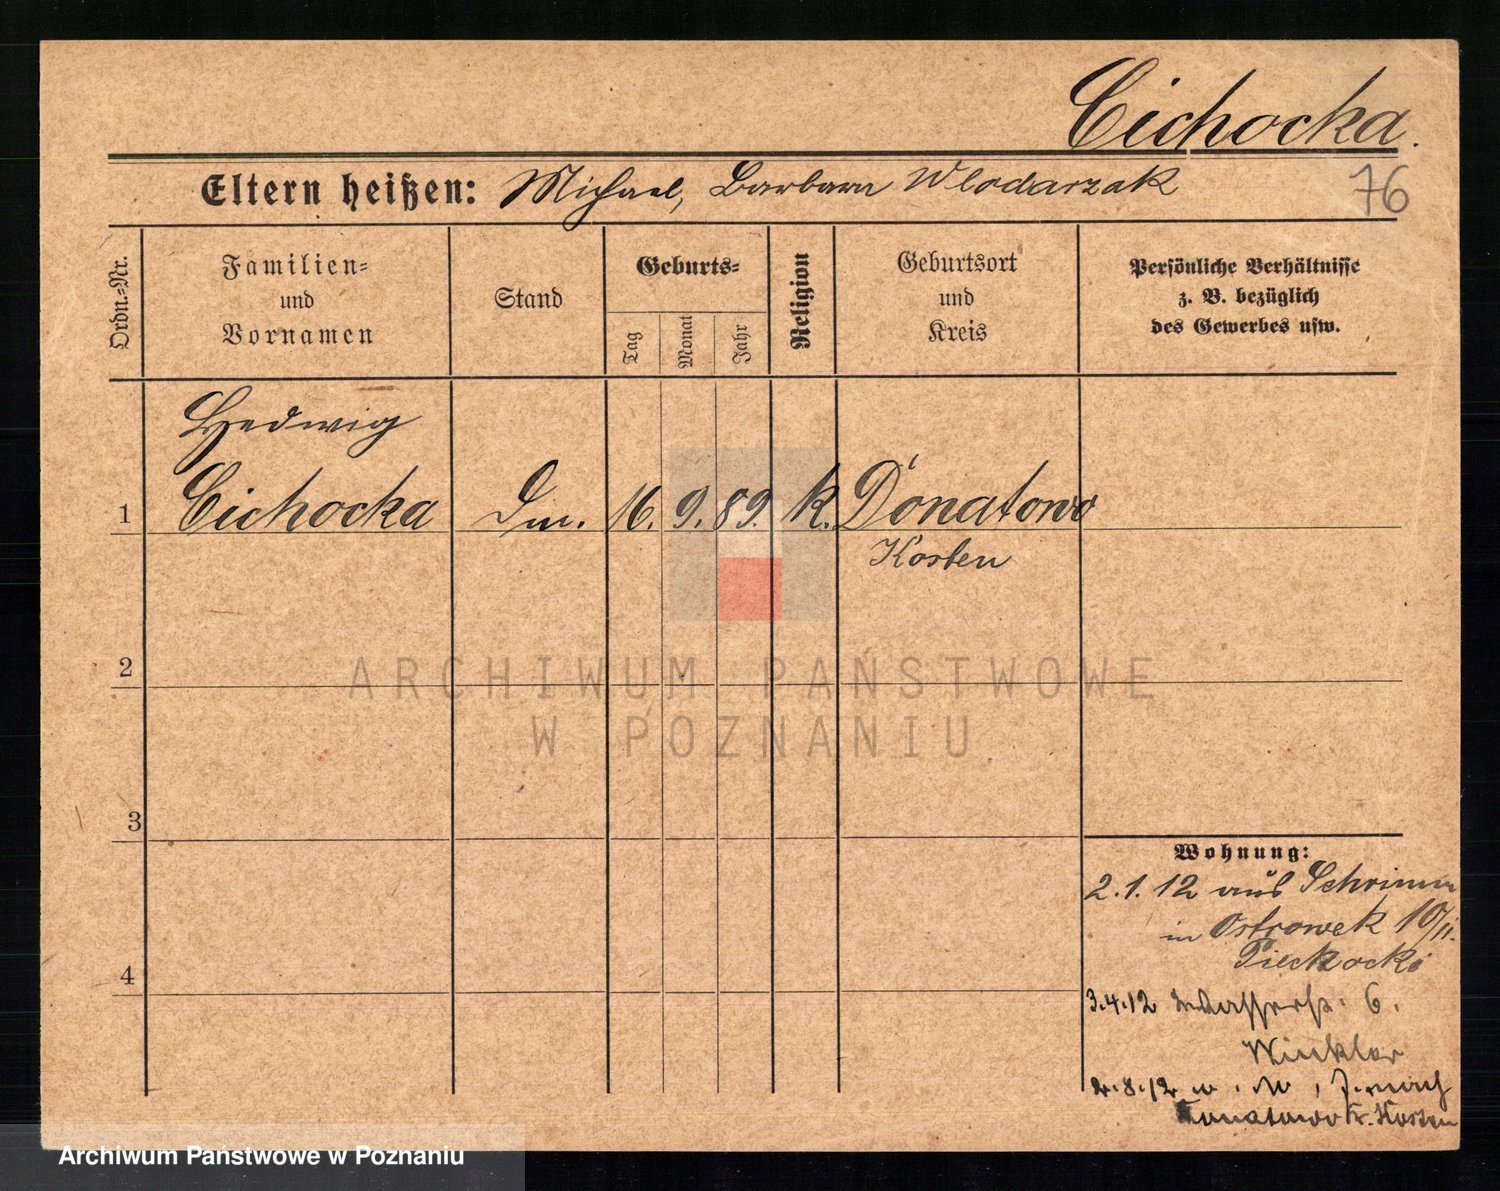 Cichocka.
Eltern heißen: Michael, Barbara Wlodarzak
76
Ordn.-Nr.
Familien-
und
Vornamen
Stand
Geburts-
Tag
Monat
Jahr
Religion
Geburtsort
und
Kreis
Persönliche Verhältnisse
z. B. bezüglich
des Gewerbes usw.
Hedwig
1 Cichocka Dm. 16. 9. 89. k. Donatowo
Kosten
2
ARCHIWUM PAŃSTWOWE
W POZNANIU
3
Wohnung:
2.1.12 aus Schrimm
in Ostrowek 10/11.
4
3.4.12 Wasserstr. 6.
Winkler
2.8.12 nach
Donatowo Kr. Kosten
Archiwum Państwowe w Poznaniu